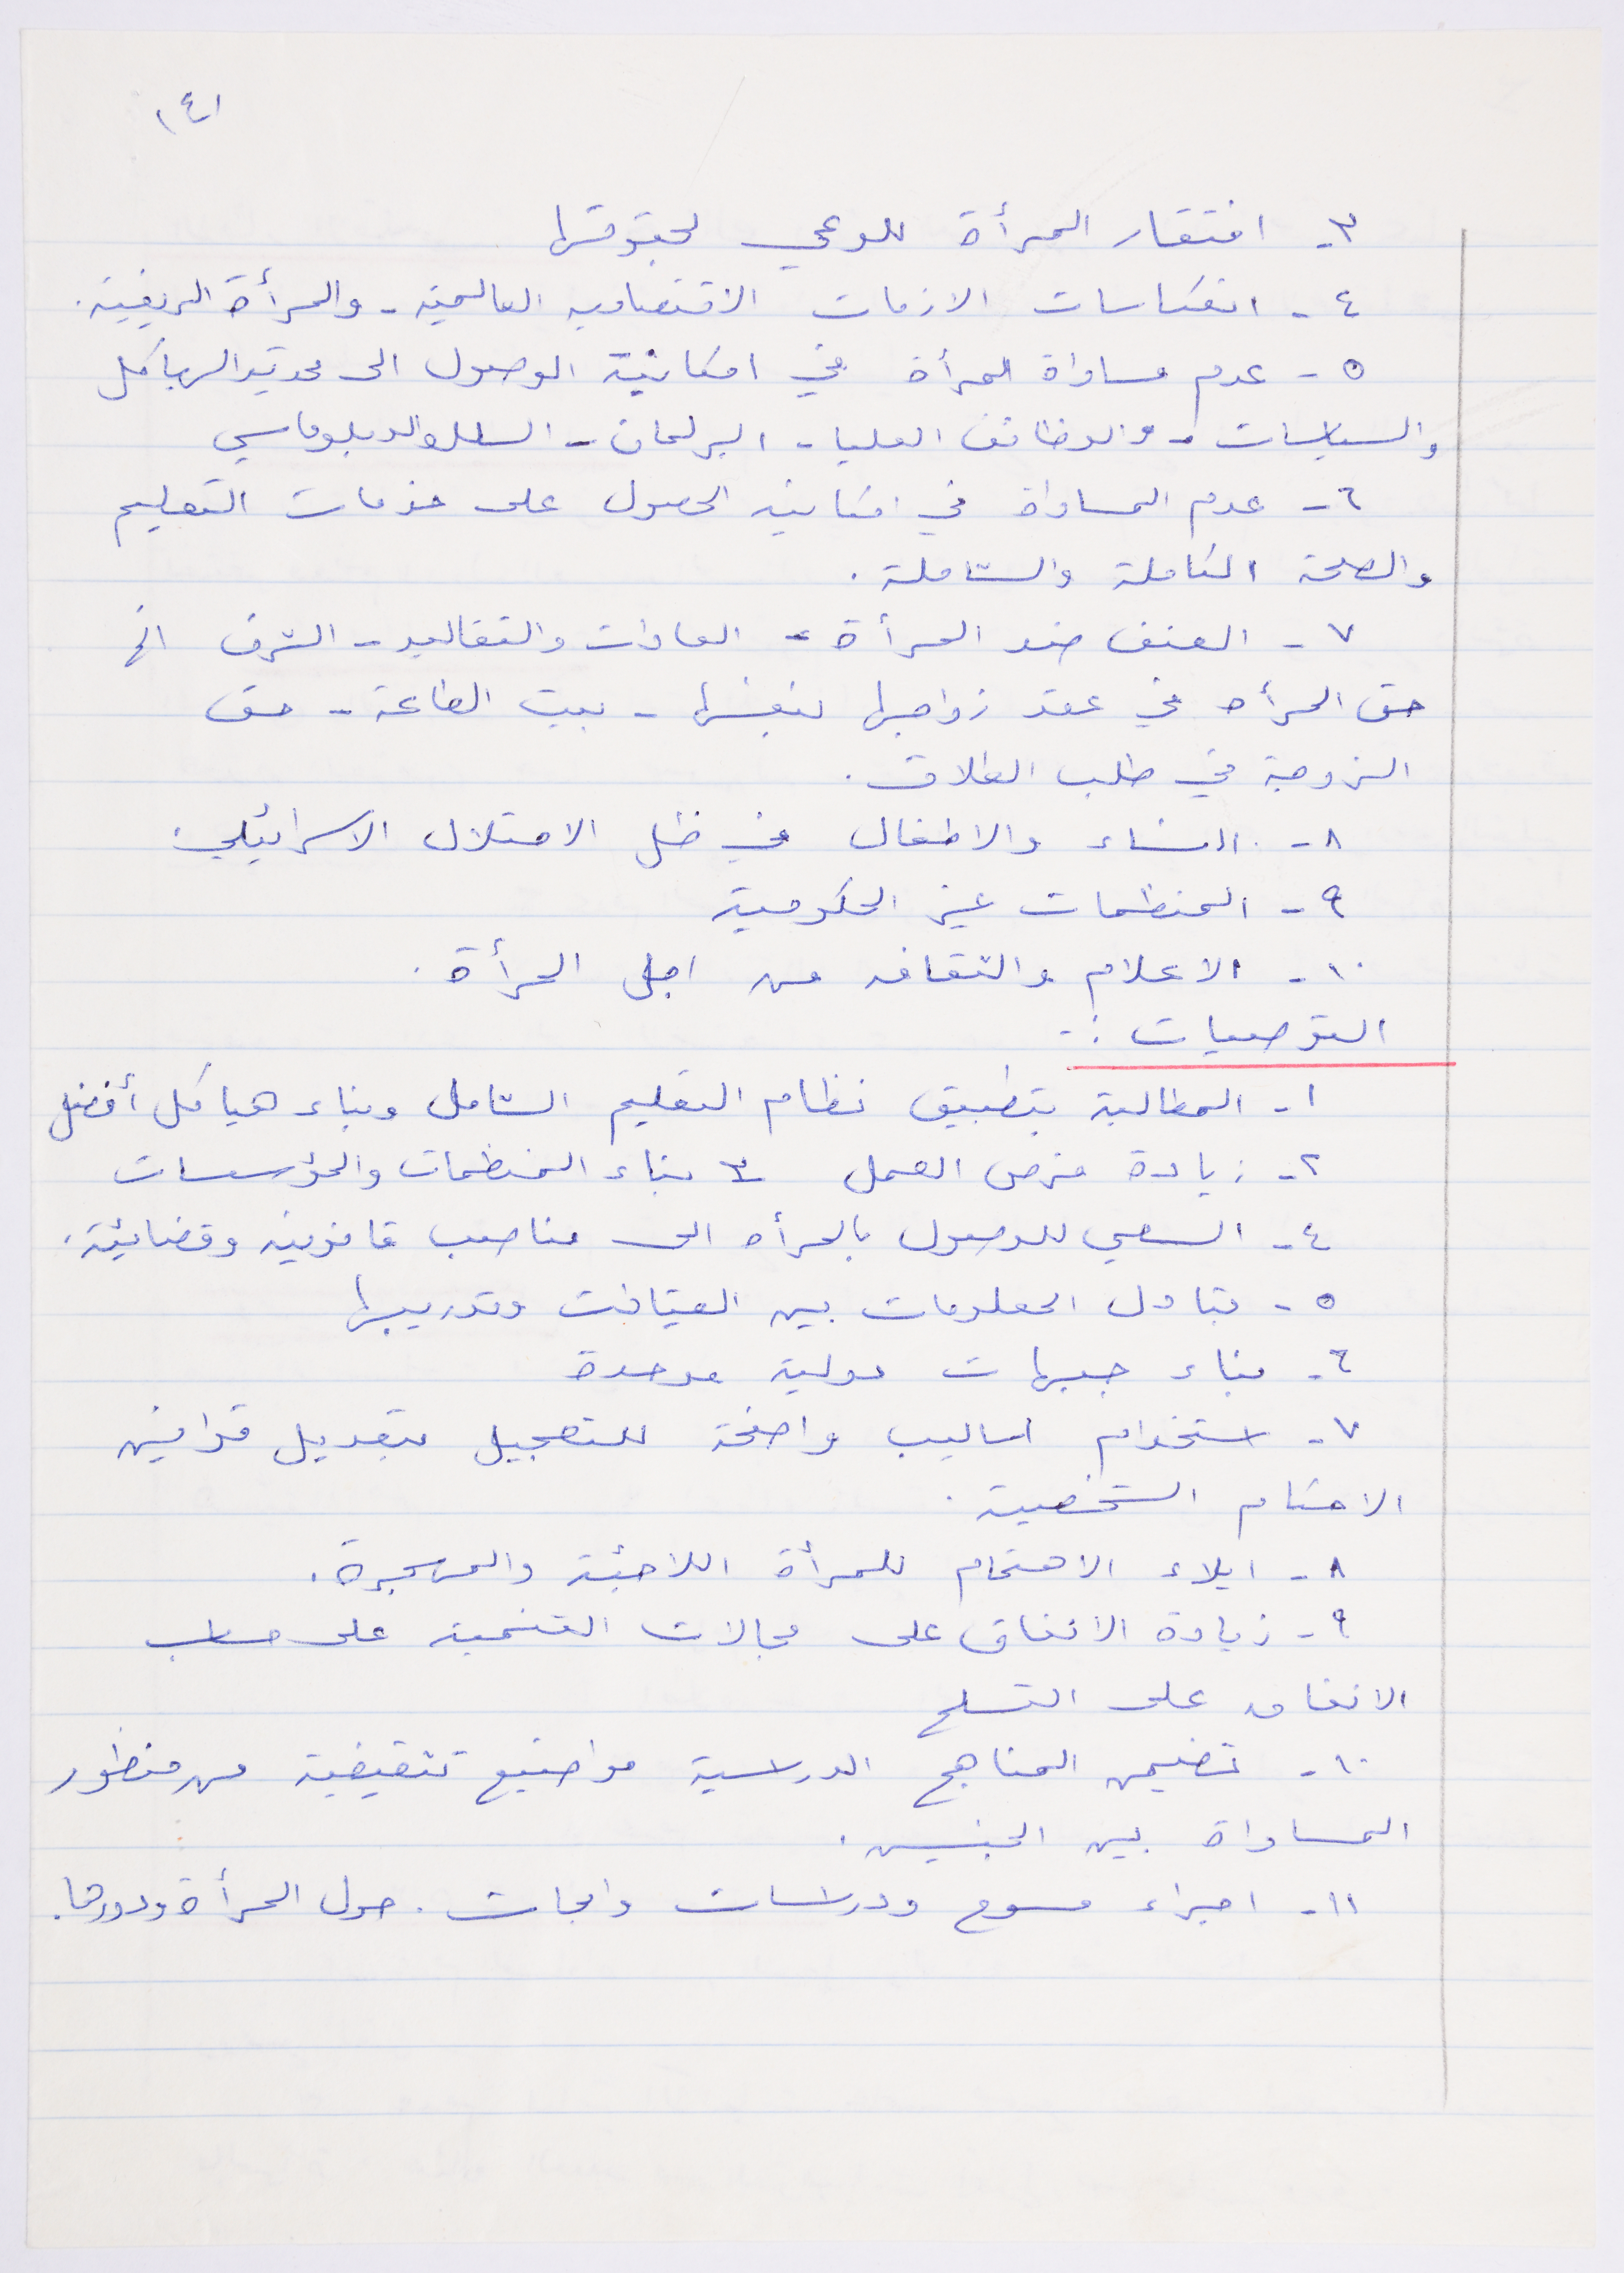 ١٤١
٣- افتقار المرأة للوعي لحقوقها
٤- انعكاسات الازمات الاقتصاديه العالمية - والمرأة الريفية.
٥- عدم مساواة المرأة في امكانية الوصول الى محدتيد الهياكل
والسياسات - والوظائف العليا - البرلمان - السلك الدبلوماسي
٦- عدم المساواة في امكانيه الحصول على خدمات التعليم
والصحة الكاملة والشاملة.
٧- العنف ضد المرأة - العادات والتقاليد - الشرف الخ
حق المرأه في عقد زواجها بنفسها - بيت الطاعة - حق
الزوجة في طلب الطلاق.
٨- النساء والاطفال في ظل الاحتلال الاسرائيلي.
٩- المنظمات غير الحكومية
١٠- الاعلام والثقافه من اجل المرأة.
التوصيات :-
١- المطالبة بتطبيق نظام التعليم الشامل وبناء هياكل أفضل
٢- زيادة فرص العمل ٣- بناء المنظمات والمؤسسات
٤- السعي للوصول بالمرأه الى مناصب قانونيه وقضائية.
٥- تبادل المعلومات بين القيادات وتدريبها
٦- بناء جبهات دولية موحدة
٧- استخدام اساليب واضحة للتعجيل بتعديل قوانين
الاحكام الشخصية.
٨- ايلاء الاهتمام للمرأة اللاجئة والمهجرة.
٩- زيادة الانفاق على مجالات التنمية على حساب
الانفاق على التسلح
١٠- تضمين المناهج الدراسية مواضيع تثقيفية من منظور
المساواة بين الجنسين.
١١- اجراء مسوح ودراسات وابحاث. حول المرأة ودورها.